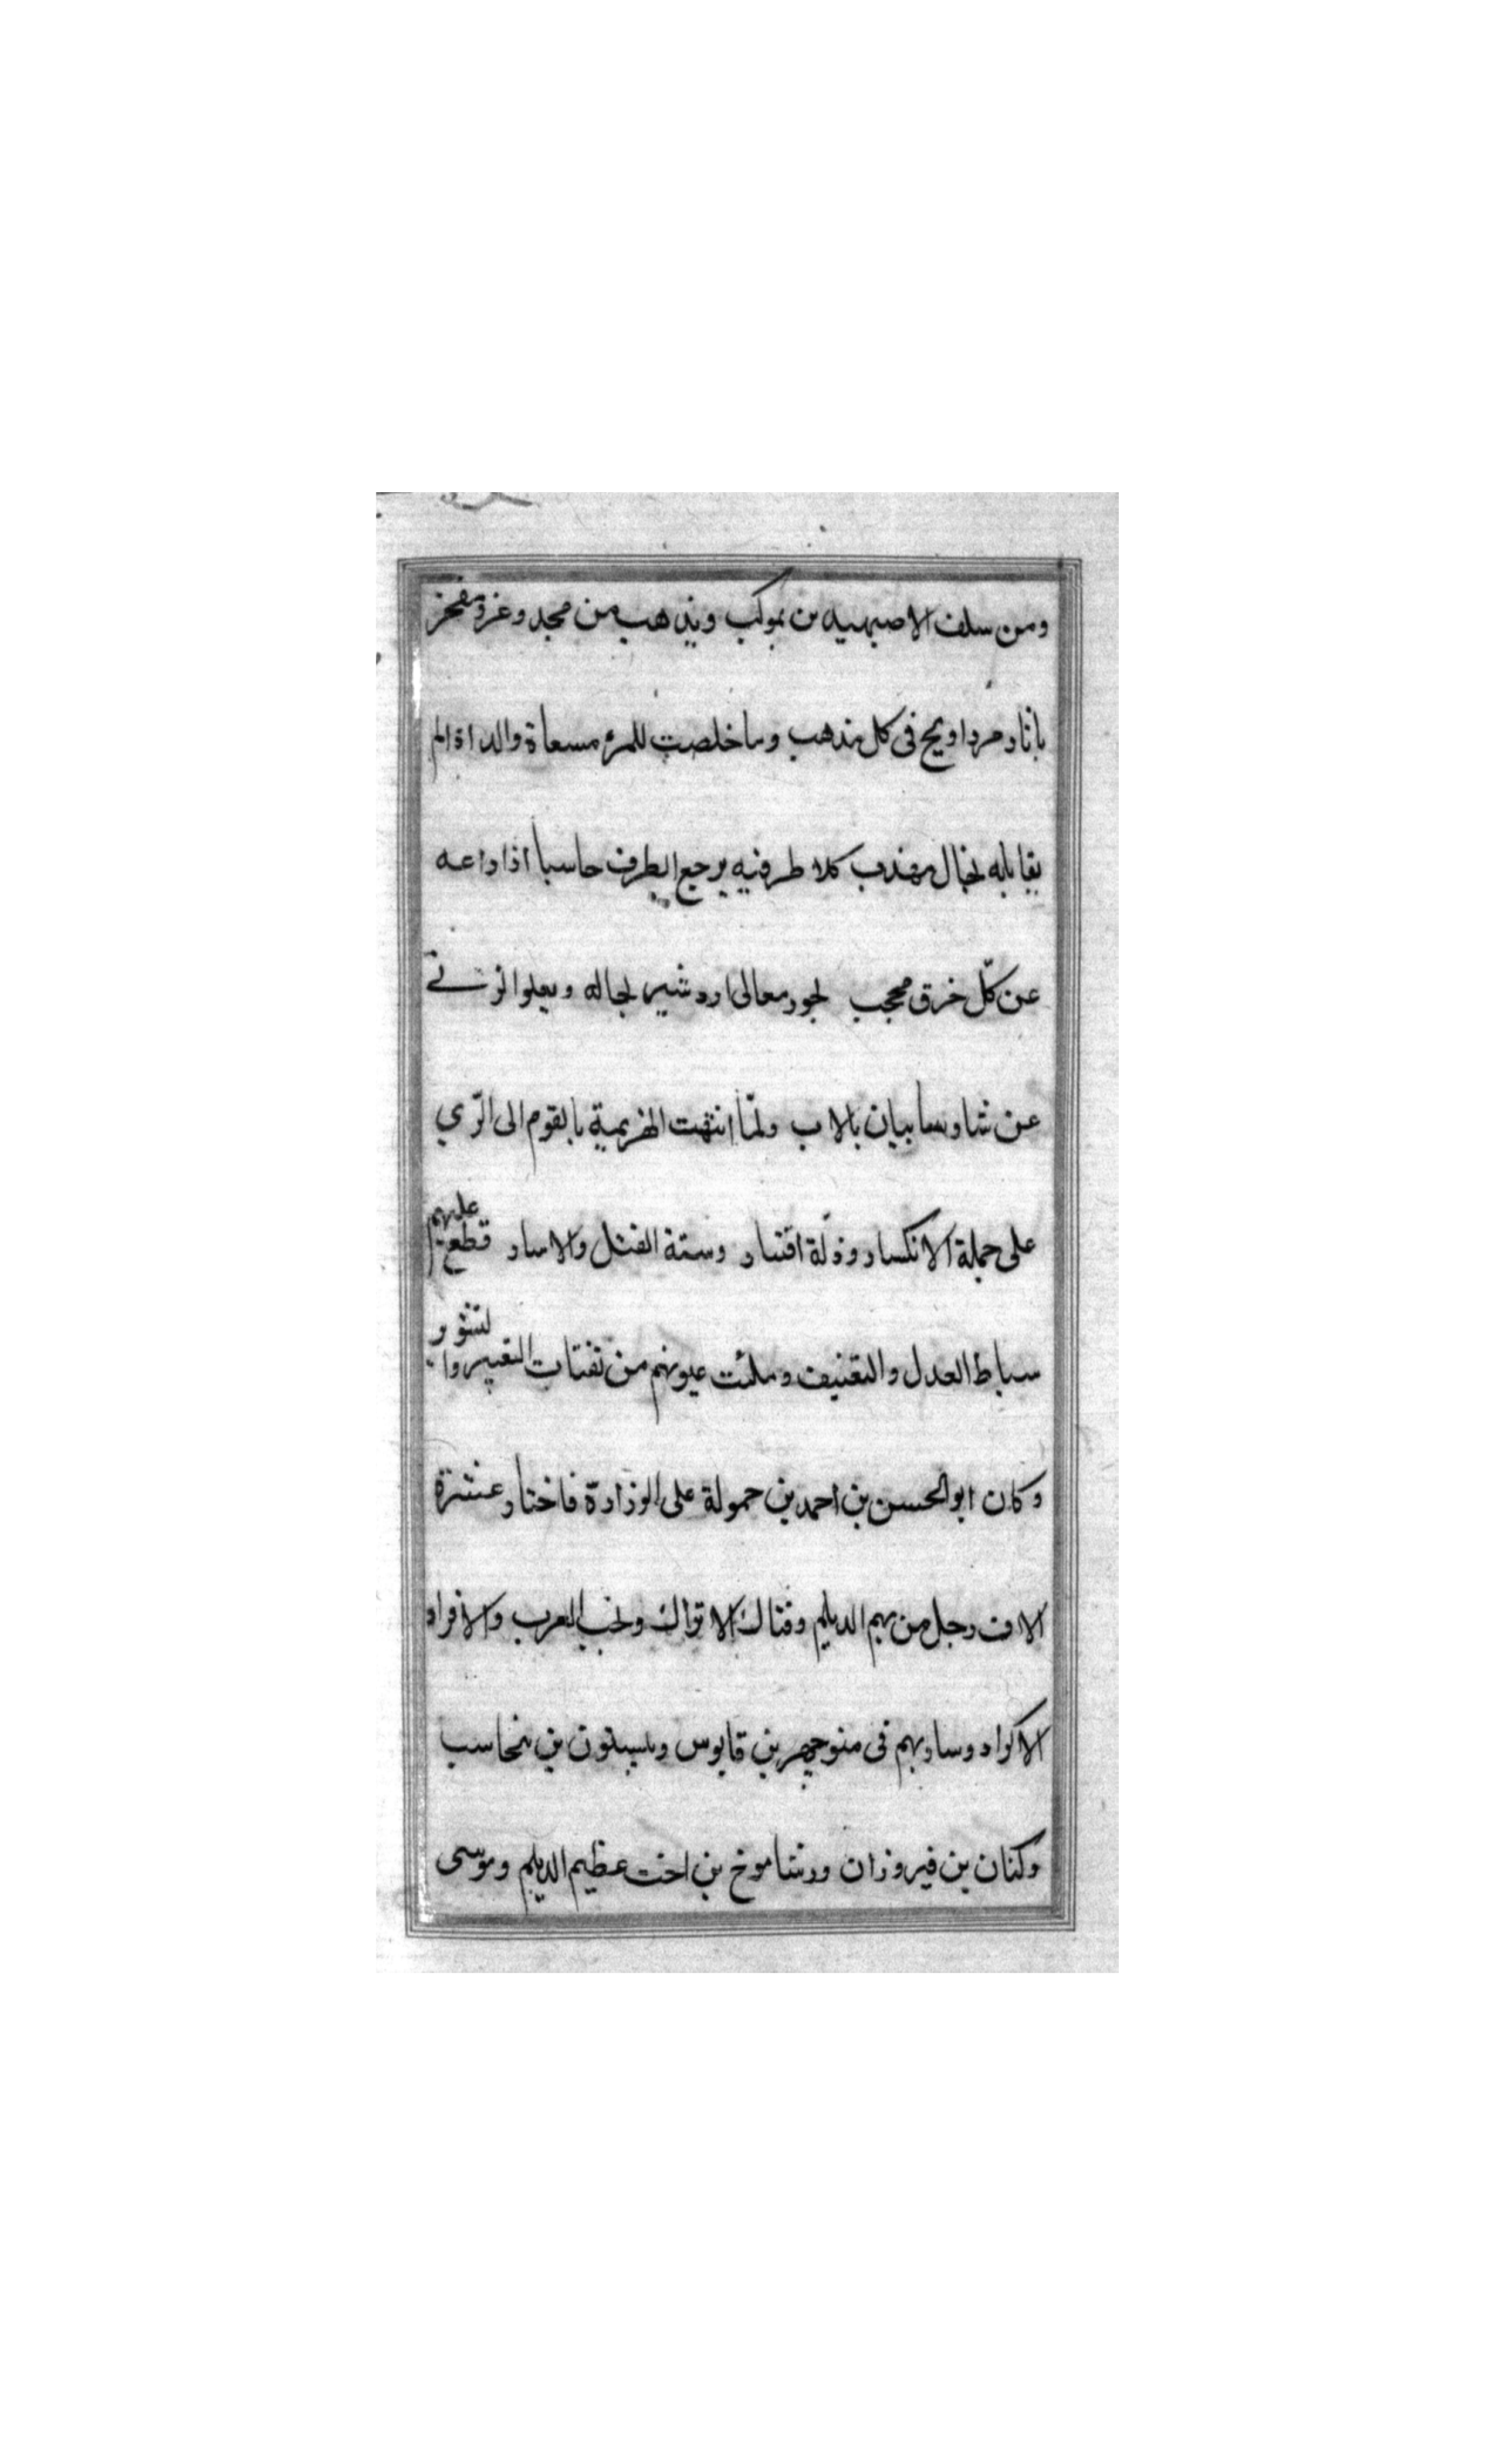 ومن سلف الاصبهبد من بموكب ويذهب من مجد وعز ومفخر
باناد مرداويج فى كل مذهب وما خلصت للمرء مسعاة والداذا لم
يقابله نجال مهذب كلا طرفيه يرجع الطرف حاسبا اذا داعه
عن كلّ خرق محجب لجود معالى اردشير لجاله ويعلوا
عن شاو سابيان بالاب ولمّا انتهت الهزيمية بالقوم الى الرّي
على حملة الانكسار وذلة اقتسار وستة القتل والاسار قطع عليهم
سباط العدل والتقنيف وملئت عيونهم من نفتات التعيير وا لتثوير
وكان ابو الحسن بن احمد بن حمولة على الوزارة فاختار عشرة
الاف رجل من بهم الديلم وفتاك الاتراك ونخب العرب والافراد
الاكراد وساربهم فى منوجهر بن قابوس وبيستون بن بنجاسب
وكنان بن فيروزان ورشاموخ بن اخت عظيم الديلم وموسى